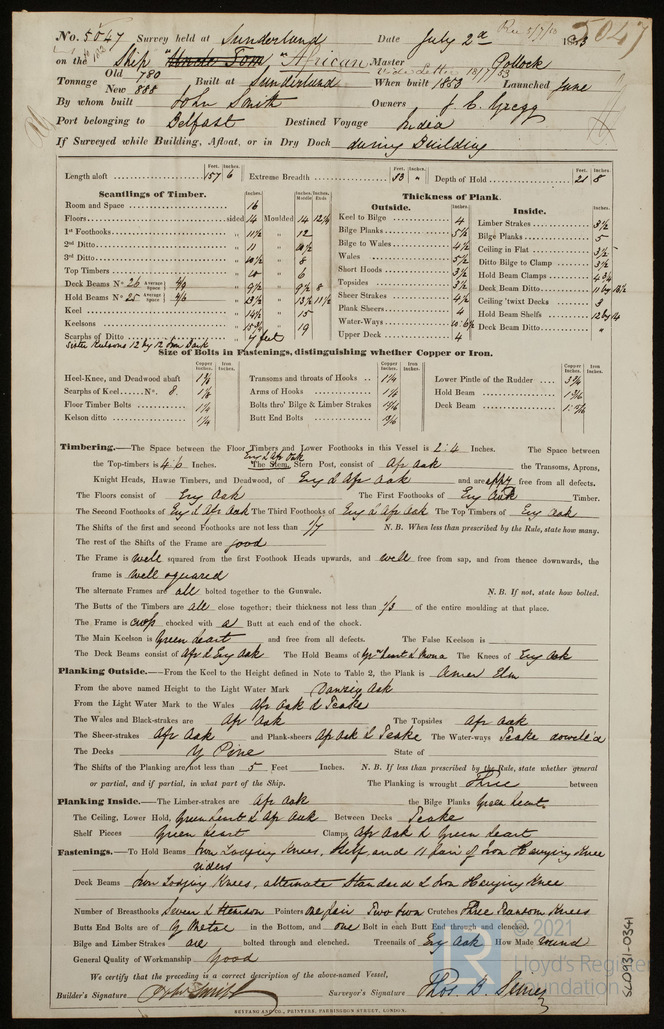 No. 5047 Survey held at Sunderland Date July 2d 1853
5047
on the Ship "Uncle Tom" "African" Master Pollock
Vide Letter 18/7/53
Tonnage Old 780 New 888 Built at Sunderland When built 1853 Launched June
By whom built John Smith Owners J. C. Gregg
Port belonging to Belfast Destined Voyage India
If Surveyed while Building, Afloat, or in Dry Dock during Building
Length aloft 157 6 Extreme Breadth 33 " Depth of Hold 21 8
Scantlings of Timber. Thickness of Plank.
Outside. Inside.
Room and Space 16
Floors sided 14 Moulded 14 12½
1st Foothooks 11½ 12
2nd Ditto 11 10½
3rd Ditto 10½ 8
Top Timbers 10 6
Deck Beams No. 26 Average Space 9½ 9½ 8
Hold Beams No. 25 Average Space 13½ 13½ 11½
Keel 14½ 15
Keelsons 15¾ 19
Scarphs of Ditto 7 feet
Keel to Bilge 4
Bilge Planks 5½
Bilge to Wales 4½
Wales 5½
Short Hoods 3½
Topsides 3½
Sheer Strakes 4½
Plank Sheers 4
Water-Ways
Upper Deck 4
Limber Strakes 3½
Bilge Planks 5
Ceiling in Flat 3½
Ditto Bilge to Clamp 3½
Hold Beam Clamps
Deck Beam Ditto
Ceiling 'twixt Decks 3
Hold Beam Shelfs 12 by 14
Deck Beam Ditto "
Size of Bolts in Fastenings, distinguishing whether Copper or Iron.
Heel-Knee, and Deadwood abaft
Scarphs of Keel No. 8.
Floor Timber Bolts 1¼
Kelson ditto 1¼
Transoms and throats of Hooks 1¼
Arms of Hooks 1¼
Bolts thro' Bilge & Limber Strakes
Butt End Bolts
Lower Pintle of the Rudder
Hold Beam
Deck Beam
Timbering.—The Space between the Floor Timbers and Lower Foothooks in this Vessel is 2:4 Inches. The Space between
the Top-timbers is 4:6 Inches. The Stem, Eng & Afr Oak Stern Post, consist of Afr Oak the Transoms, Aprons,
Knight Heads, Hawse Timbers, and Deadwood, of Eng & Afr Oak and are appy free from all defects.
The Floors consist of Eng Oak The First Foothooks of Eng Oak Timber.
The Second Foothooks of Eng & Afr Oak The Third Foothooks of Eng & Afr Oak The Top Timbers of Eng Oak
The Shifts of the first and second Foothooks are not less than 1/7 N.B. When less than prescribed by the Rule, state how many.
The rest of the Shifts of the Frame are good
The Frame is well squared from the first Foothook Heads upwards, and well free from sap, and from thence downwards, the
frame is well squared
The alternate Frames are all bolted together to the Gunwale. N.B. If not, state how bolted.
The Butts of the Timbers are all close together; their thickness not less than 1/3 of the entire moulding at that place.
The Frame is crop chocked with a Butt at each end of the chock.
The Main Keelson is Green heart and free from all defects. The False Keelson is
The Deck Beams consist of Afr & Eng Oak The Hold Beams of Gr heart & Mora The Knees of Eng Oak
Planking Outside.—From the Keel to the Height defined in Note to Table 2, the Plank is Amer Elm
From the above named Height to the Light Water Mark Danzig Oak
From the Light Water Mark to the Wales Afr Oak & Teake
The Wales and Black-strakes are Afr Oak The Topsides Afr Oak
The Sheer-strakes Afr Oak and Plank-sheers Afr Oak & Teake The Water-ways Teake dowell'd
The Decks Y Pine State of
The Shifts of the Planking are not less than 5 Feet Inches. N.B. If less than prescribed by the Rule, state whether general
or partial, and if partial, in what part of the Ship. The Planking is wrought Three between
Planking Inside.—The Limber-strakes are Afr Oak the Bilge Planks Green heart
The Ceiling, Lower Hold, Green heart & Afr Oak Between Decks Teake
Shelf Pieces Green heart Clamps Afr Oak & Green heart
Fastenings.—To Hold Beams Iron Lodging Knees, Shelf, and 11 pair of Iron Hanging Knee
riders
Deck Beams Iron Lodging Knees, alternate Standard & Iron Hanging Knee
Number of Breasthooks Seven & Pointers one pair Two Iron Crutches Three Transom Knees
Butts End Bolts are of Y Metal in the Bottom, and one Bolt in each Butt End through and clenched.
Bilge and Limber Strakes are bolted through and clenched. Treenails of Eng Oak How Made
General Quality of Workmanship Good
We certify that the preceding is a correct description of the above-named Vessel,
Builder's Signature John Smith Surveyor's Signature Thos. B.
SEYFANG AND CO., PRINTERS, FARRINGDON STREET, LONDON.
© 2021
Lloyd's Register
Foundation
SLD931-0341